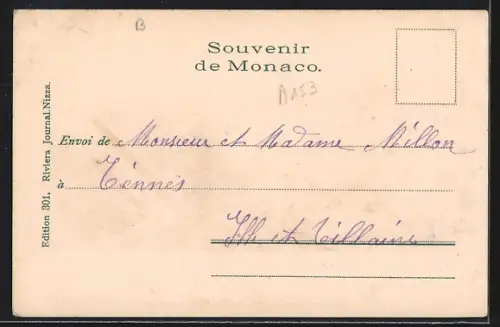 B
Souvenir
de Monaco.
A153
Edition 301. Riviera Journal. Nizza.
Envoi de Monsieur et Madame Millon
à
Ille et Villaine